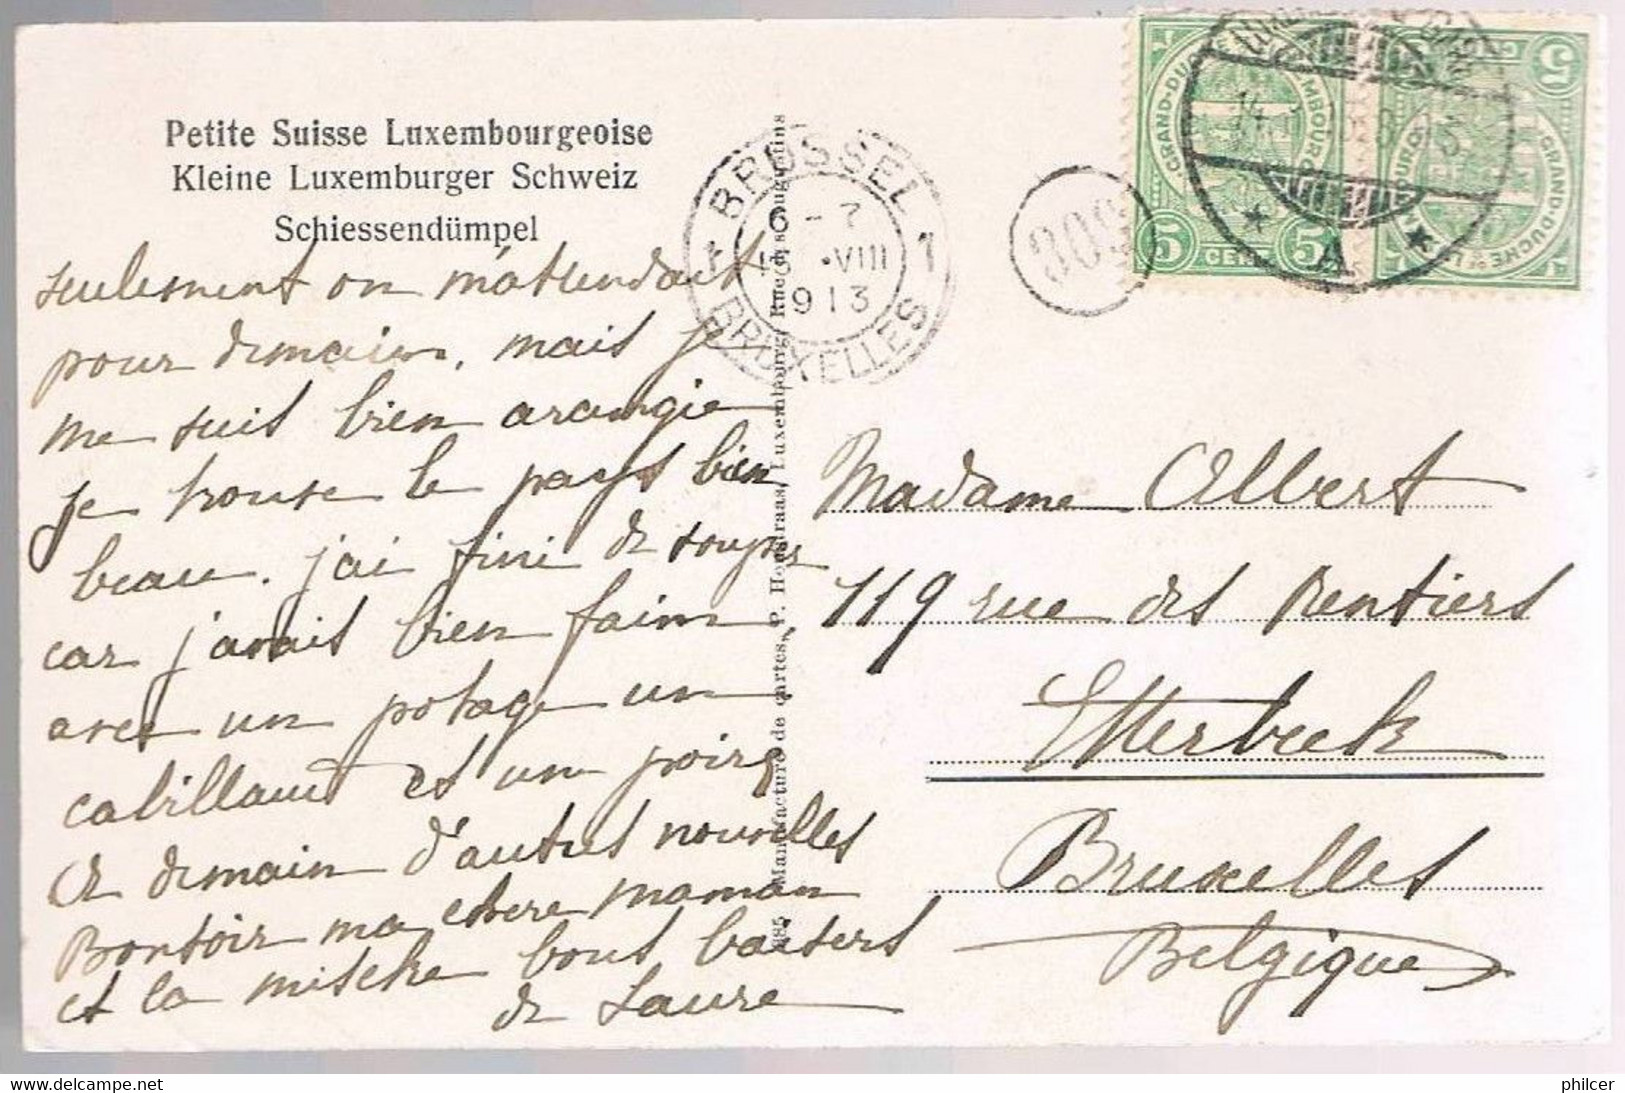 Petite Suisse Luxembourgeoise
Kleine Luxemburger Schweiz
Schiessendümpel
seulement on m'attendait
pour demain, mais je
me suis bien arangie
je trouve le pays bien
beau. j'ai fini de souper
car j'avais bien faim
avec un potage un
cabillaud et un poire
et demain d'autres nouvelles
Bontoir ma chere maman
et la mische bons baisers
de Laure
485 Manufacture de cartes, P. Houstraas, Luxembourg, Rue des Augustins
BRUSSEL
6-7
VIII
1913
BRUXELLES
1
1
309
GRAND-DUCHÉ
LUXEMBOURG
5
CENT
5
5
CENT
GRAND-DUCHÉ DE LUXEMBOURG
A
Madame Albert
119 rue des Rentiers
Etterbeek
Bruxelles
Belgique
www.delcampe.net
philcer